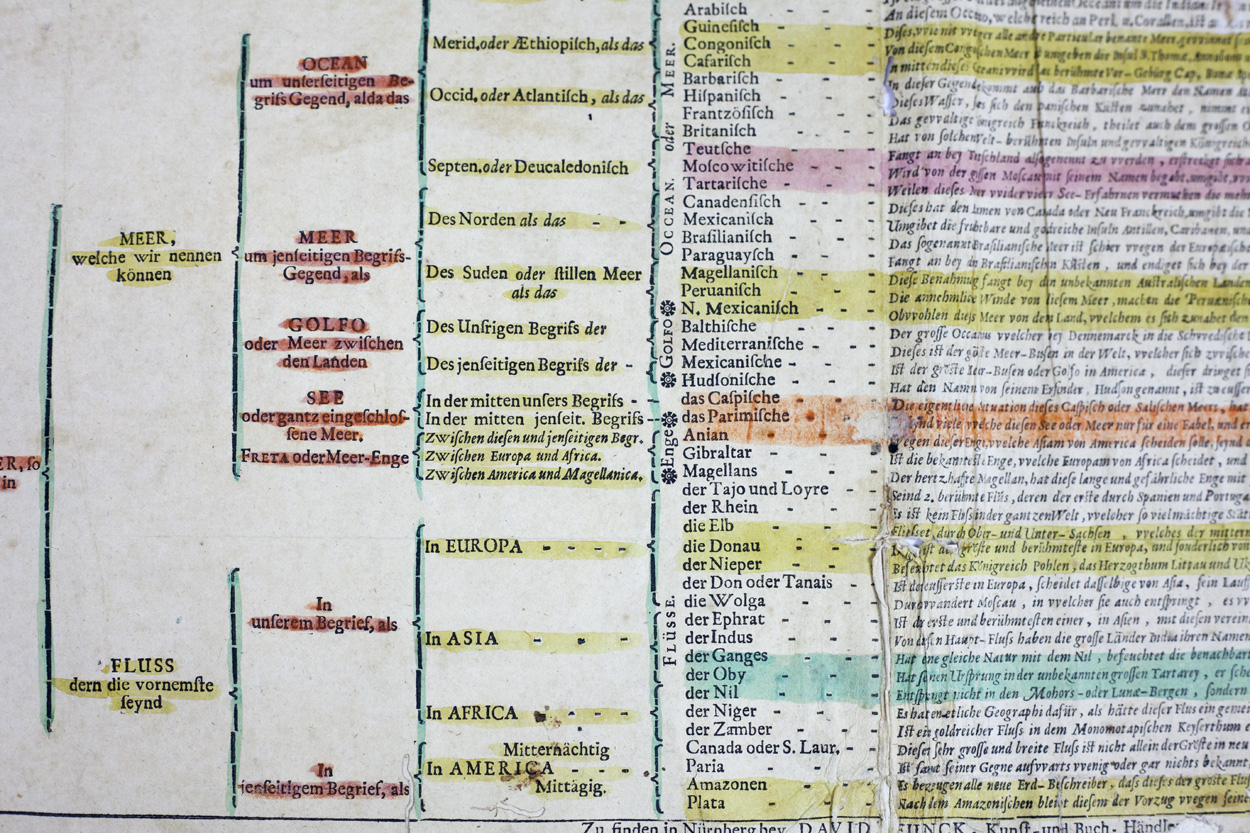 ER, so
in
MEER,
welche wir nennen
können
FLUSS
dern die vornemſte
ſeynd
OCEAN
um unſerſeitigen Be-
grifs Gegend, alda das
MEER
um jenſeitigen Begrifs-
Gegend, als
GOLFO
oder Meer zwiſchen
den Landen
SEE
oder gantz eingeſchloſ-
ſene Meer.
FRETA oder Meer-Enge
In
unſerem Begrief, als
In
jenſeitigem Begrief, als
Merid, oder Æthiopiſch, als das
Occid. oder Atlantiſch, als das
Septen. oder Deucaledoniſch
Des Norden als das
Des Suden oder ſtillen Meer
als das
Des Unſrigen Begrifs der
Des jenſeitigen Begrifs der
In der mitten unſers Begrifs
In der mitten jenſeit. Begrifs
Zwiſchen dieſen und jenſeitigen Begr.
Zwiſchen Europa und Africa.
Zwiſchen America und Magellanica.
In EUROPA
In ASIA
In AFRICA
Mitternächtig
In AMERICA
Mittägig.
OCEAN oder MEER.
GOLFO
Enge
FLÜSSE.
Arabiſch
Guineſiſch
Congoniſch
Cafariſch
Barbariſch
Hiſpaniſch
Frantzöſiſch
Britaniſch
Teutſche
Moscowitiſche
Tartariſche
Canadenſiſch
Mexicaniſch
Braſilianiſch
Paraguayſch
Magellaniſch
Peruaniſch
N. Mexicaniſch
Balthiſche
Mediterraniſche
Mexicaniſche
Hudſoniſche
das Caſpiſche
das Parimiſche
Anian
Gibraltar
Magellans
der Tajo und Loyre
der Rhein
die Elb
die Donau
der Nieper
der Don oder Tanais
die Wolga
der Ephrat
der Indus
der Ganges
der Oby
der Nil
der Niger
der Zamber
Canada oder S. Laur.
Paria
Amazonen
Plata
An dieſem Occano, welche reich an Perl. u. Corallen, iſt
Von dieſem
In mitten dieſes berühmte Vor-Gebürg Cap,
In dieſer Gegend das Barbariſche Meer den Namen
Dieſes Waſſer, ſich den Küſten zunahet, nimmt
Das gevvaltige Königreich Franckreich, theilet auch dem groſſen
Hat von ſolchen Welt-berühmten Inſuln und gevvaltigen Königreich
Fangt an bey alſogenennt zu vverden, erſtrecket ſich
Wird von der groſſen Moscau mit ſeinem Namen begabt,
Weilen dieſes vvider vier See-Erfahrnen
Dieſes hat den Namen von Canada oder Neu Franckreich, umgibt die
Umgibet die fruchtbare und goldreiche Inſuln Antillen, Caribanen, und
Das ſogenannt Braſilianiſche Meer iſt ſchier vvegen der
Fangt an bey den Braſilianiſchen Küſten, und endiget ſich bey der
Dieſe Benahmug fangt bey den unbekannten Auſtraliſchen Landen
Die annehmliche Winde von dieſem Meer, machen die Peruaniſch
Obvvohlen dieſes Meer von dem Land, vvelchem es ſich zunahet
Der groſſe Occanus vvelcher bey Dennemarck in die Schvvediſche
Dieſes iſt der gröſte Meer-Buſen in der Welt, vvelcher ſich zvviſche
Iſt der groſſte Meer-Buſen oder Golfo in America, dieſer dringet
Hat den Namen von ſeinem Erfinder, Hudſon genannt, iſt
Die eigentliche Situation dieſes Caſpiſch oder Saliſchen Meers,
und viele vvelche dieſen See oder Meer nur für eine Fabel, und
Wegen dieſer Enge, vvelche Aſiam von America ſcheiden ſolle, ſeynd
Iſt die bekannteſte Enge, vvelche Europam von Africa ſcheidet, und
Der hertzhafte Magellan, hat dieſe lange und gefährliche Enge mit
Seind 2. berühmte Flüſs, deren der erſte durch Spanien und Portuga
Es iſt kein Fluſs in der gantzen Welt, vvelcher ſo viel mächtige
Flieſset durch Ober- und Unter-Sachſen, vvelches der mittern
Iſt der gröſte und berühmteſte in Europa, und ſonderlich von
Befeuchtet das Königreich Pohlen, das Herzogthum Littau und
Iſt der euſſerſte in Europa, ſcheidet daſſelbige von Aſia, ſein
Durchvvandert Moſcau, in vvelcher ſie auch entſpringt,
Iſt der erſte und berühmteſten einer, in Aſien, mit dieſen verein
Von dieſen Haupt-Fluſs haben die groſſe Länder India ihren Namen
Hat eine gleiche Natur mit dem Nil, befeuchtet die benachbart
Hat ſeinen Urſprung in der unbekannten groſſen Tartarey, er
Entſpringt nicht in den Mohors- oder Luna-Bergen, ſondern
Es haben etliche Geographi dafür, als hätte dieſer Fluſs ein gemein
Iſt ein goldreicher Fluſs in dem Monomotapiſchen Keyſerthum
Dieſer ſehr groſſe und breite Fluſs iſt nicht allein der Gröſte in neu
Iſt ſamt ſeiner Gegne aufvvarts vvenig oder gar nichts bekannt
Es bezeugen alle neue Erd-Beſchreiber, daſs dieſes der gröſte Fluſs
Nach dem Amazoniſchen bleibt dieſem der Vorzug vvegen ſeine
Zu finden in Nürnberg bey DAVID FUNCK, Kunſt- und Buch-Händl